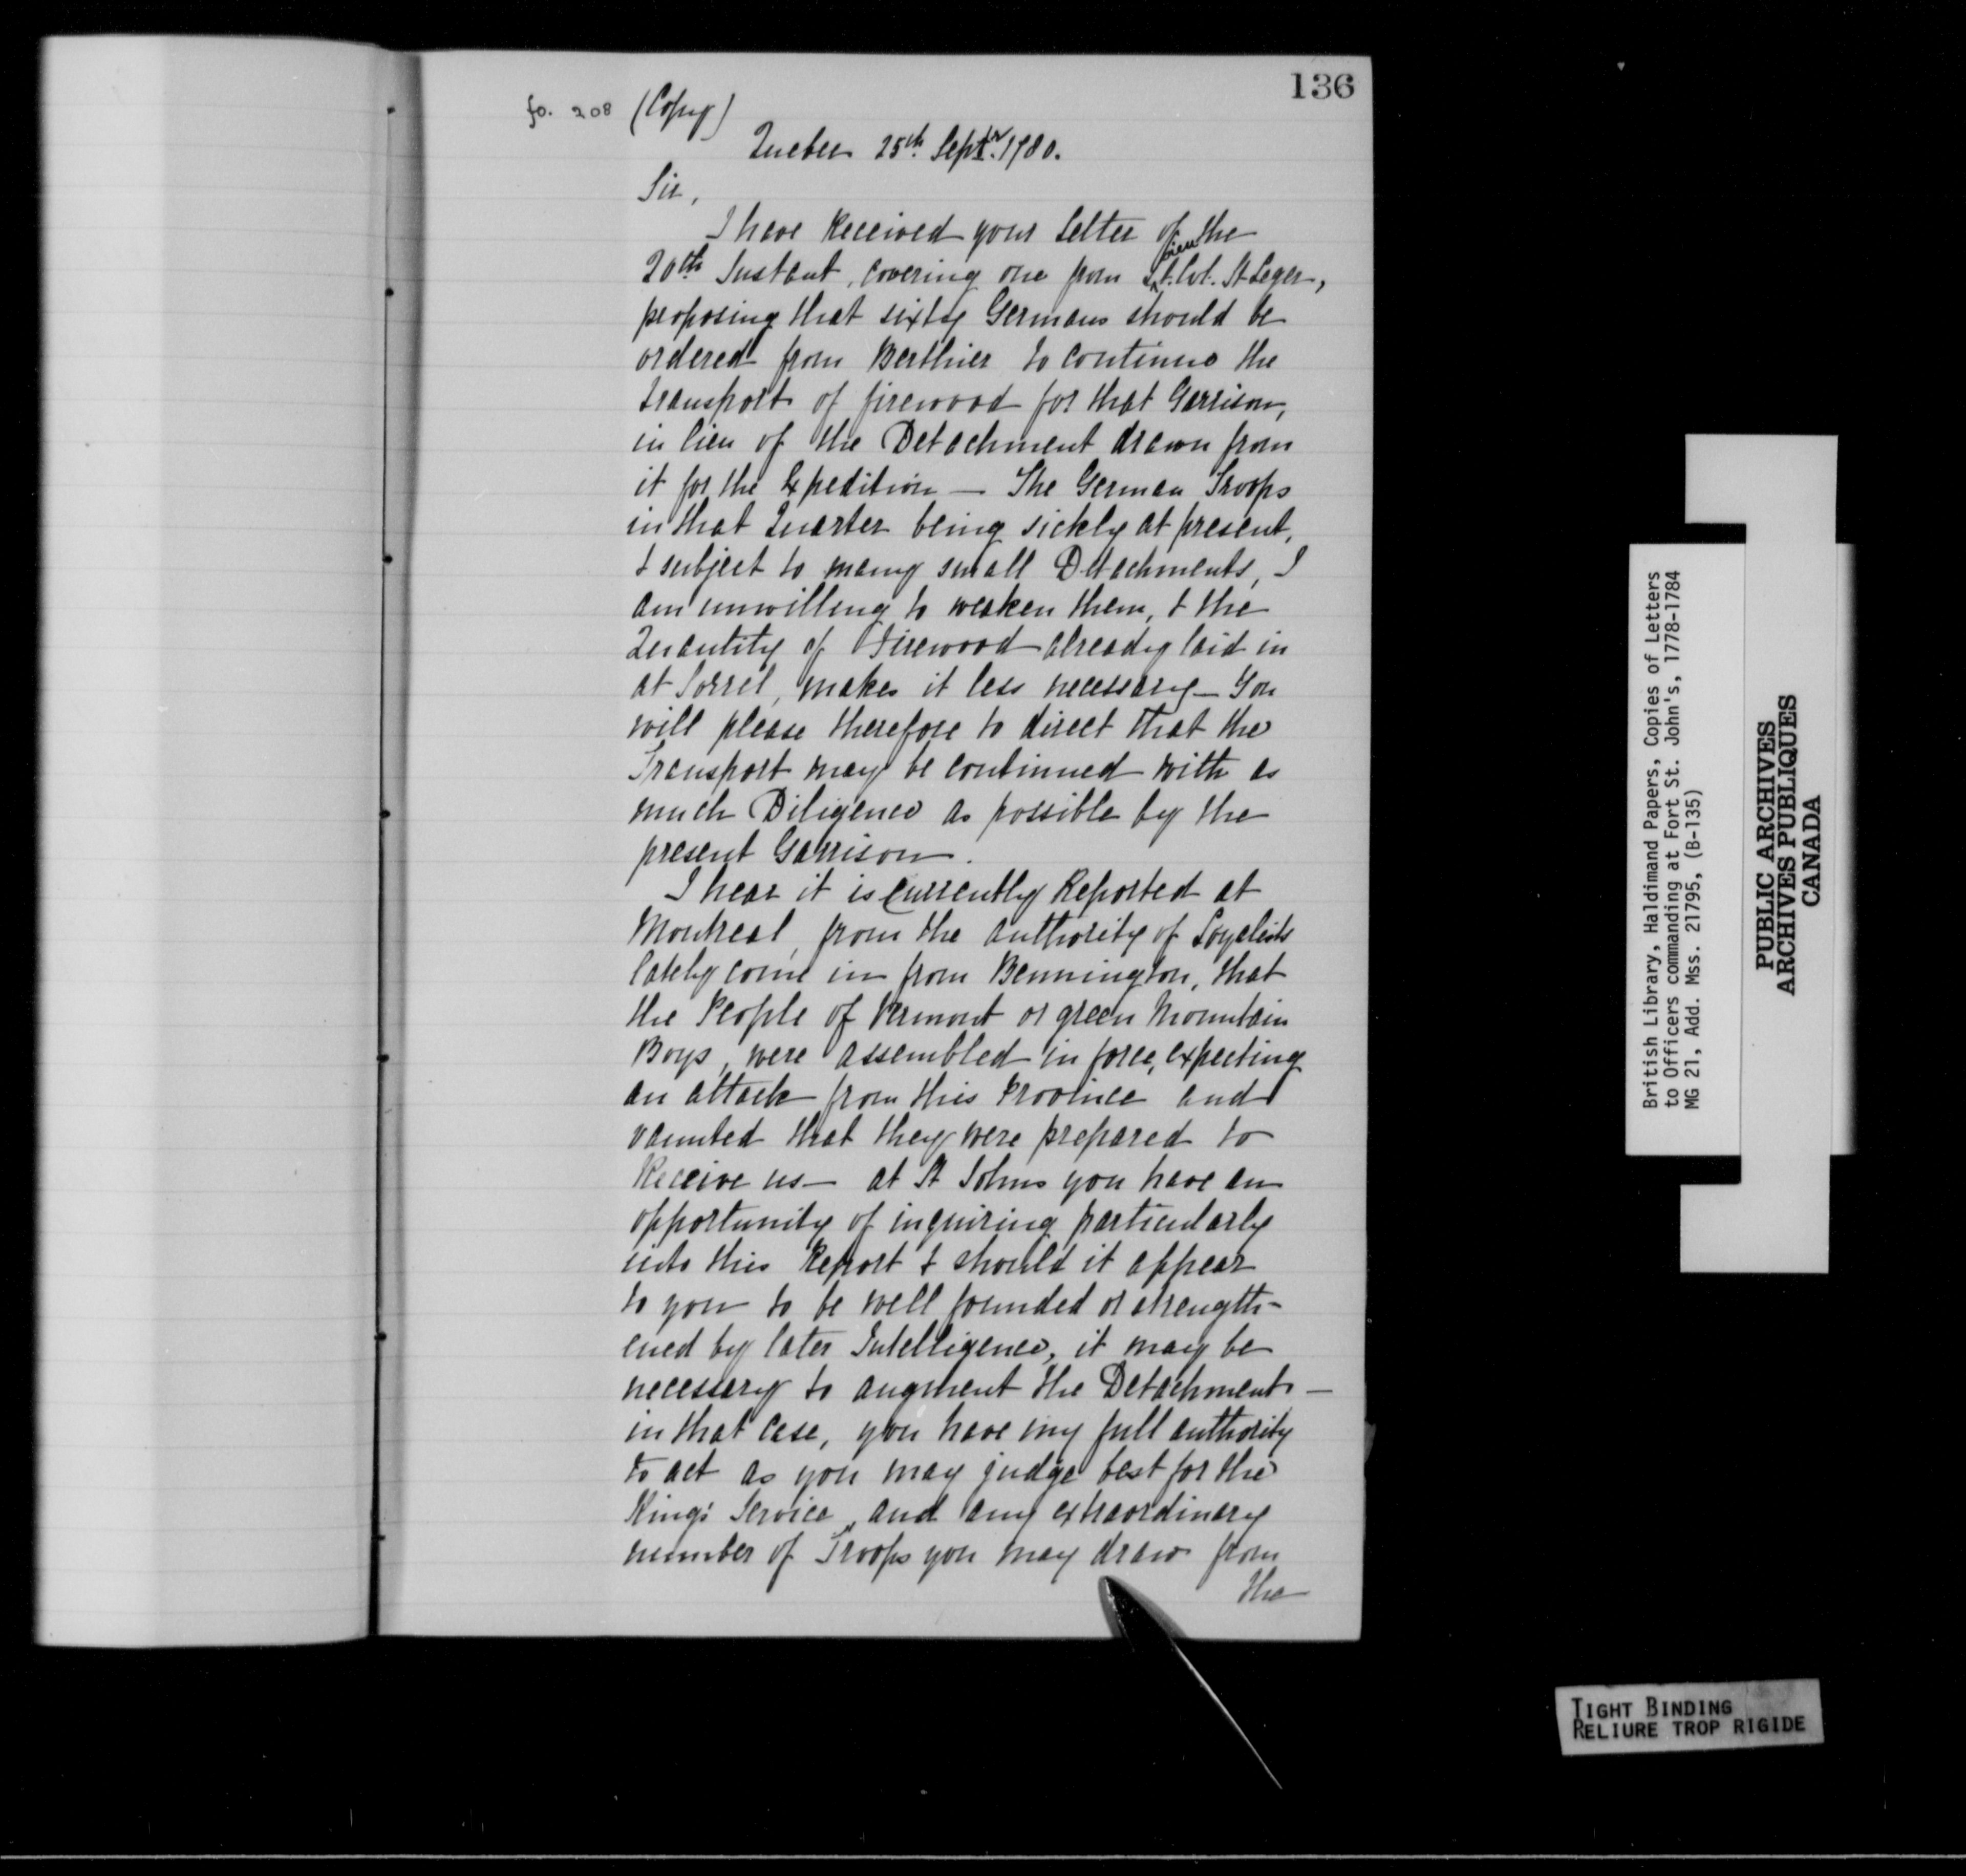 136
fo. 208 (Copy)
Quebec 25th Septr. 1780.
Sir,
I have Received your Letter of the
20th Instant, covering one from Lieut. Col. St Leger,
proposing that sixty Germans should be
ordered from Berthier to continue the
transport of firewood for that Garrison,
in lieu of the Detachment drawn from
it for the Expedition — The German Troops
in that Quarter being sickly at present,
& subject to many small Detachments, I
am unwilling to weaken them, & the
Quantity of Firewood already laid in
at Sorrel, makes it less necessary — You
will please therefore to direct that the
Transport may be continued with as
much Diligence as possible by the
present Garrison.
I hear it is Currently Reported at
Montreal, from the authority of Loyalists
lately come in from Bennington, that
the People of Vermont or green Mountain
Boys, were assembled in force, expecting
an attack from this Province and
vaunted that they were prepared to
Receive us — at St Johns you have an
opportunity of inquiring particularly
into this Report & should it appear
to you to be well founded or strength-
ened by later Intelligence, it may be
necessary to augment the Detachments —
in that Case, you have my full authority
to act as you may judge best for the
King's Service, and any extraordinary
number of Troops you may draw from
the
British Library, Haldimand Papers, Copies of Letters
to Officers commanding at Fort St. John's, 1778-1784
MG 21, Add. Mss. 21795, (B-135)
PUBLIC ARCHIVES
ARCHIVES PUBLIQUES
CANADA
TIGHT BINDING
RELIURE TROP RIGIDE